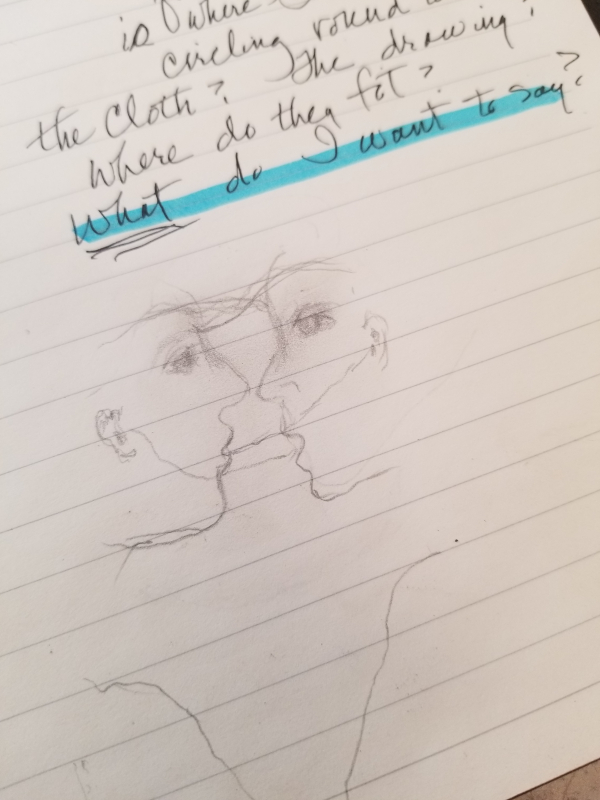 is where
circling round
the cloth? The drawing?
Where do they fit?
What do I want to say?